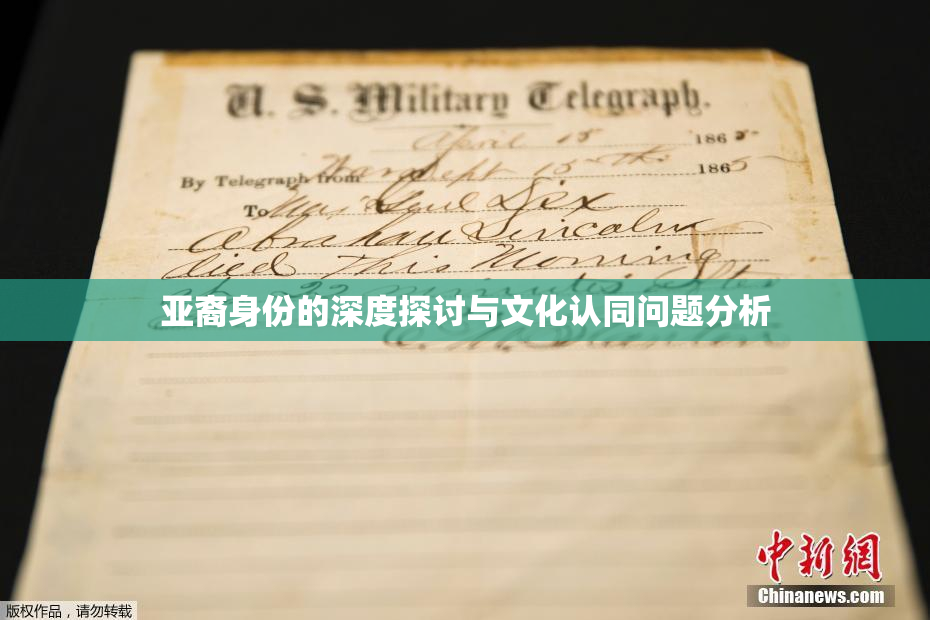 U. S. Military Telegraph.
April 15 1865
By Telegraph from War Dept 15th 1865
To Maj Genl Dix
Abraham Lincoln
died This Morning
at 22 minutes after
亚裔身份的深度探讨与文化认同问题分析
E. M. Stanton
中新网
Chinanews.com
版权作品，请勿转载